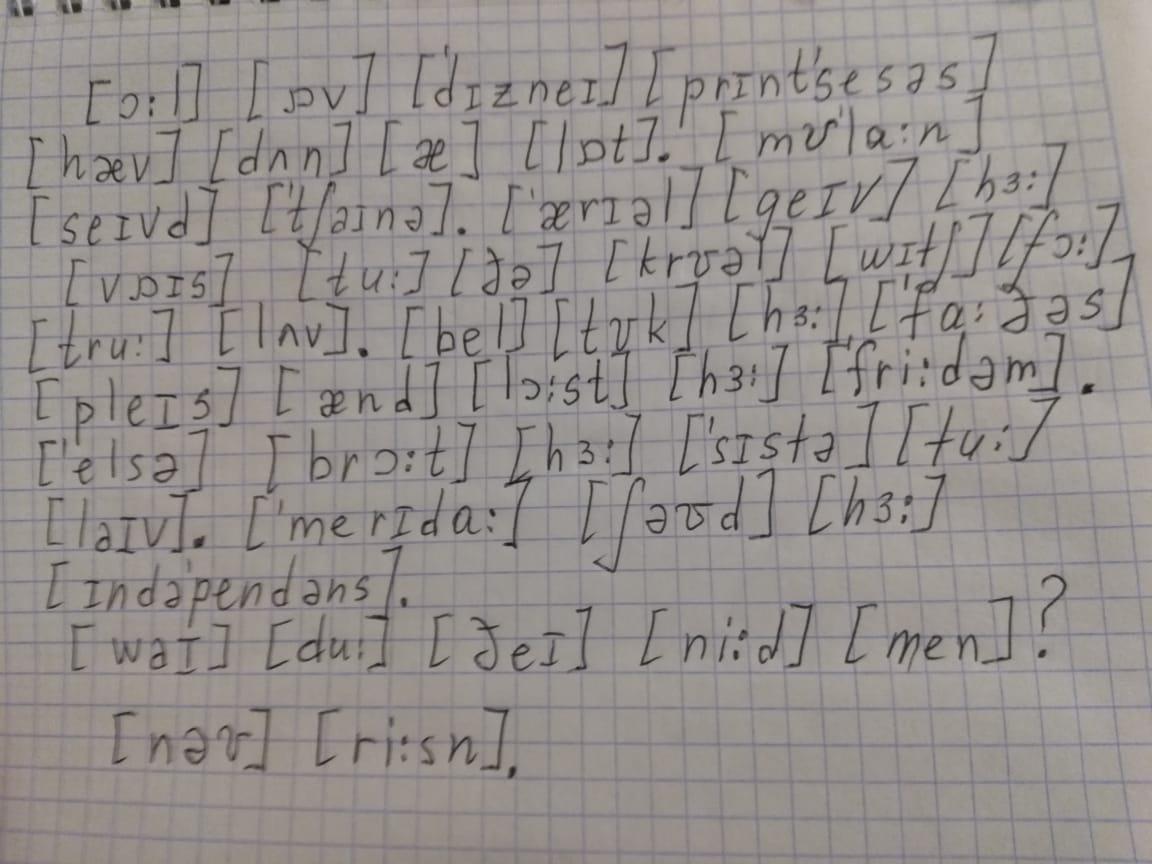 [ɔ:l] [ɒv] ['dɪzneɪ] [prɪnt'sesəs]
[hæv] [dʌn] [æ] [lɒt]. [mʊ'la:n]
[seɪvd] ['tʃeɪnə]. ['ærɪəl] [geɪv] [hɜ:]
[vɒɪs] [tu:] [ðə] [krʊəl] [wɪtʃ] [fɔ:]
[tru:] [lʌv]. [bel] [tʊk] [hɜ:] ['fa:ðəs]
[pleɪs] [ænd] [lɔ:st] [hɜ:] ['fri:dəm].
['elsə] [brɔ:t] [hɜ:] ['sɪstə] [tu:]
[ləɪv]. ['merɪda:] [ʃəʊd] [hɜ:]
[ɪndə'pendəns].
[wəɪ] [du:] [ðeɪ] [ni:d] [men]?
[nəʊ] [ri:sn].